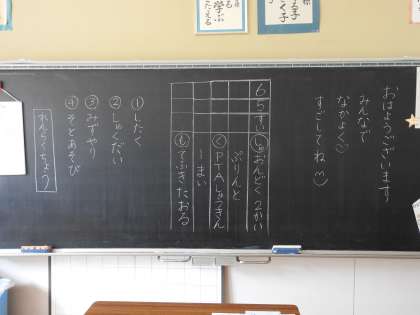 おはようございます
みんなで
なかよく
すごしてね
6
5
すい
しゅ おんどく 2かい
ぷりんと
く PTAしゅっきん
1まい
も てふきたおる
①したく
②しゅくだい
③みずやり
④そとあそび
れんらくちょう
学ぶ